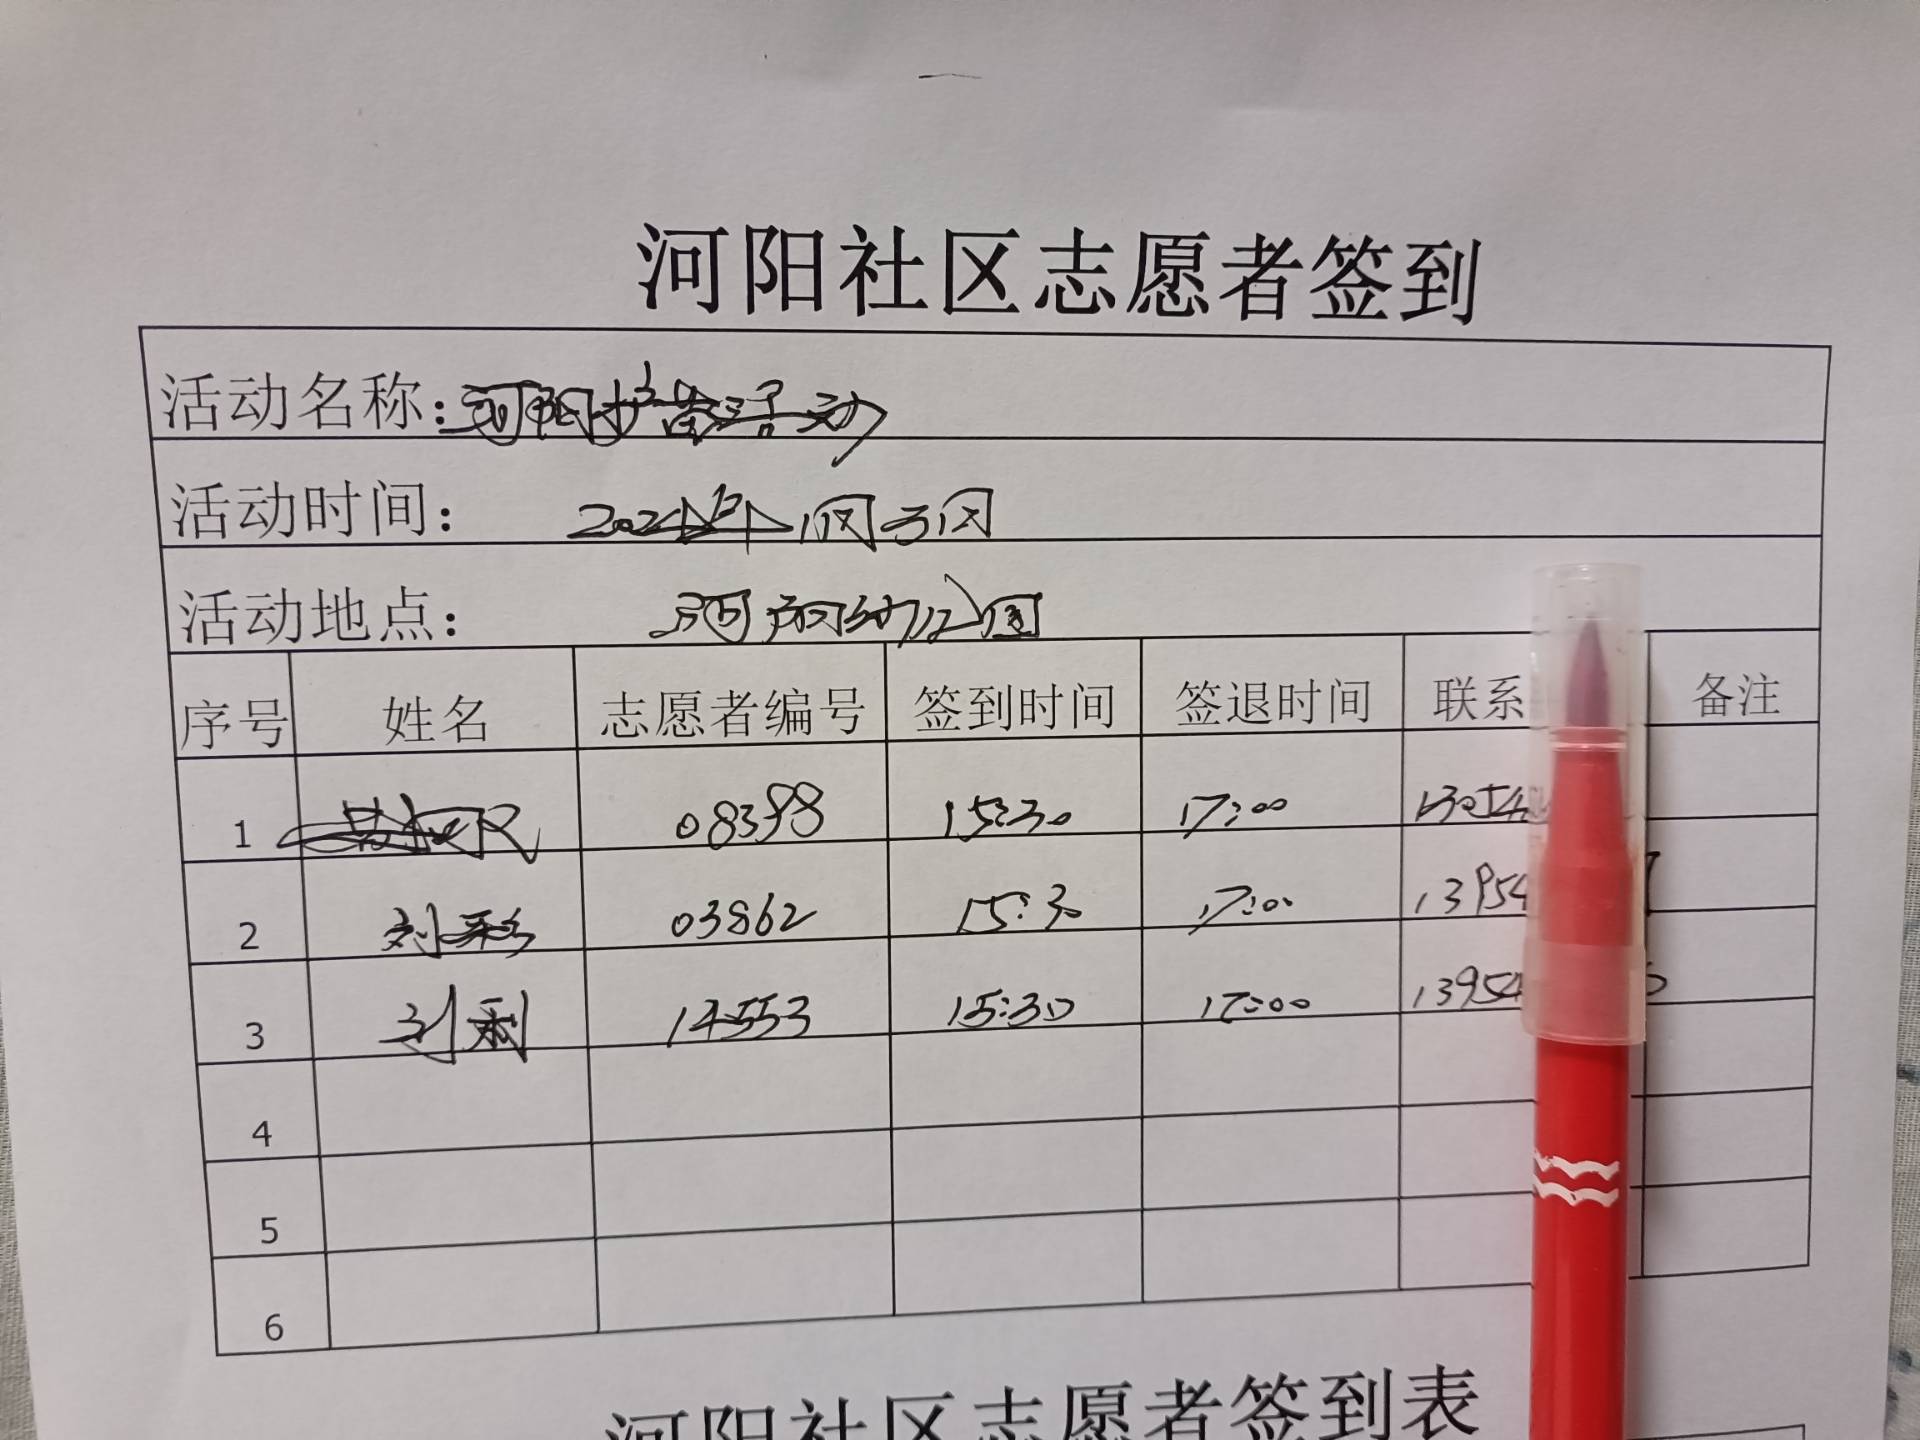 河阳社区志愿者签到
活动名称：河阳护苗活动
活动时间： 2024年1月3日
活动地点： 河阳幼儿园
序号 姓名 志愿者编号 签到时间 签退时间 联系 备注
1 08398 15:30 17:00
2 刘彩 03862 15:30 17:00 13954
3 刘利 14553 15:30 17:00 13954
4
5
6
河阳社区志愿者签到表